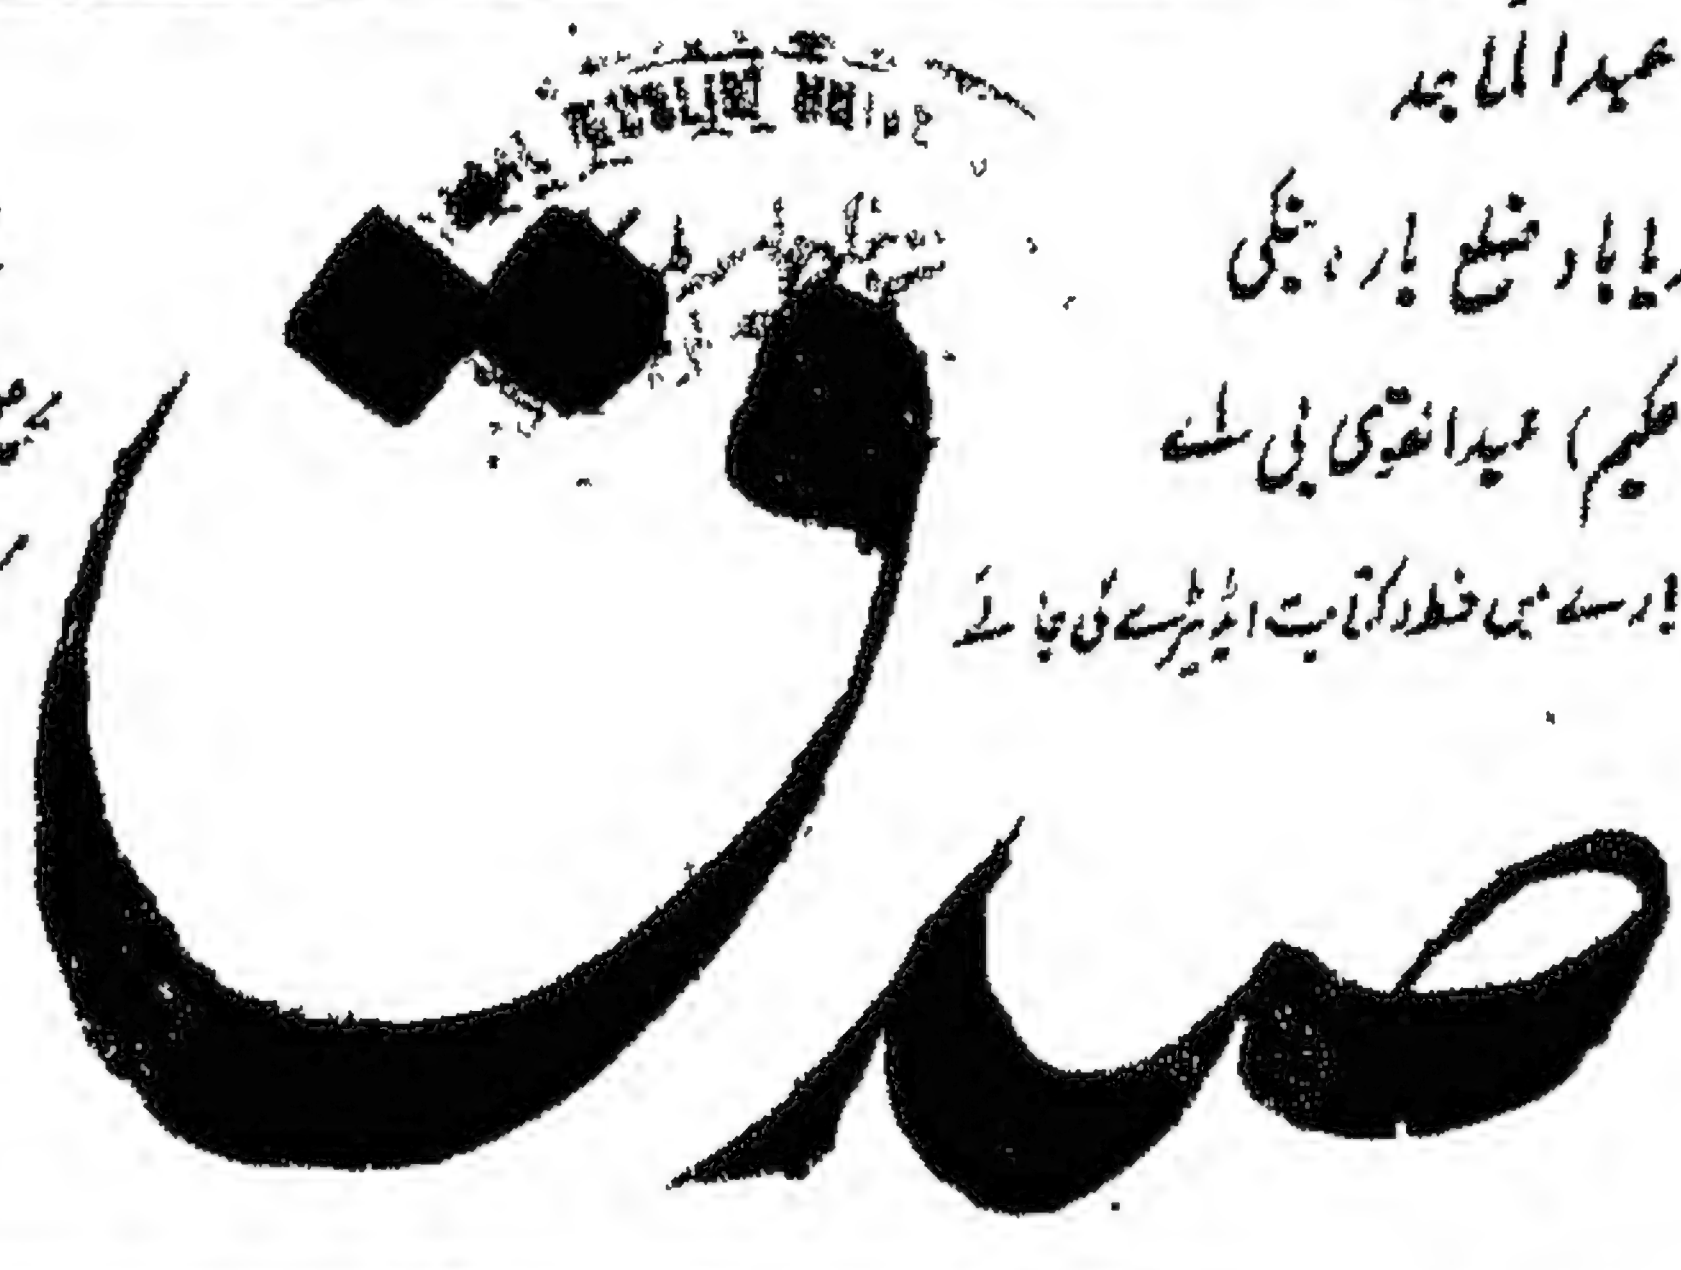 عبدالماجد
دریاباد ضلع بارہ بنکی
حکیم) عبدالقوی بی اے
بارے میں خط و کتابت ایڈیٹر سے کی جائے
صدق